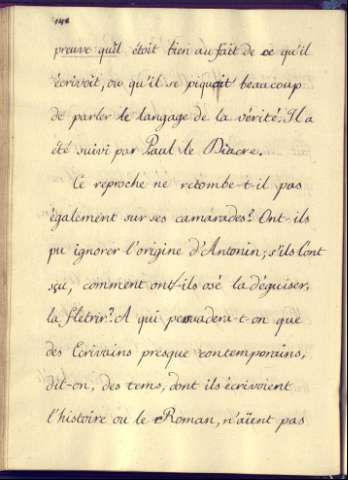 preuve qu'il étoit bien au fait de ce qu'il
écrivoit, ou qu'il se piquait beaucoup
de parler le langage de la vérité. Il a
été suivi par Paul le Diacre.
Ce reproche ne retombe-t-il pas
également sur ses camarades? Ont-ils
pu ignorer l'origine d'Antonin; s'ils l'ont
sçu, comment ont-ils osé la déguiser,
la fletrir? A qui persuadera-t-on que
des Ecrivains presque contemporains,
dit-on, des tems, dont ils écrivoient
l'histoire ou le Roman, n'aïent pas